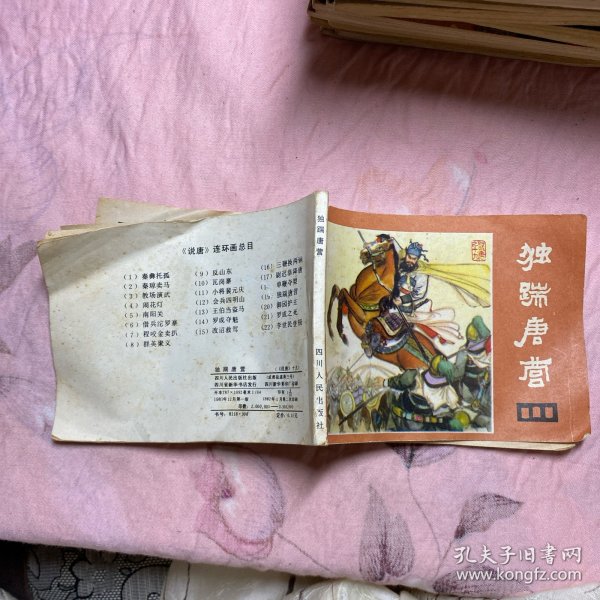 《说唐》连环画总目
(1) 秦彝托孤
(2) 秦琼卖马
(3) 教场演武
(4) 闹花灯
(5) 南阳关
(6) 借兵沱罗寨
(7) 程咬金卖扒
(8) 群英聚义
(9) 反山东
(10) 瓦岗寨
(11) 小将裴元庆
(12) 会兵四明山
(13) 王伯当盗马
(14) 罗成夺魁
(15) 改诏救驾
(16) 三鞭换两锏
单鞭夺槊
独踹唐营
御园护主
(21) 罗成之死
(22) 李世民登极
独踹唐营
四川人民出版社出版
四川省新华书店发行
书号：8118·
独踹唐营
四川人民出版社
独踹唐营
孔夫子旧书网
www.kongfz.com